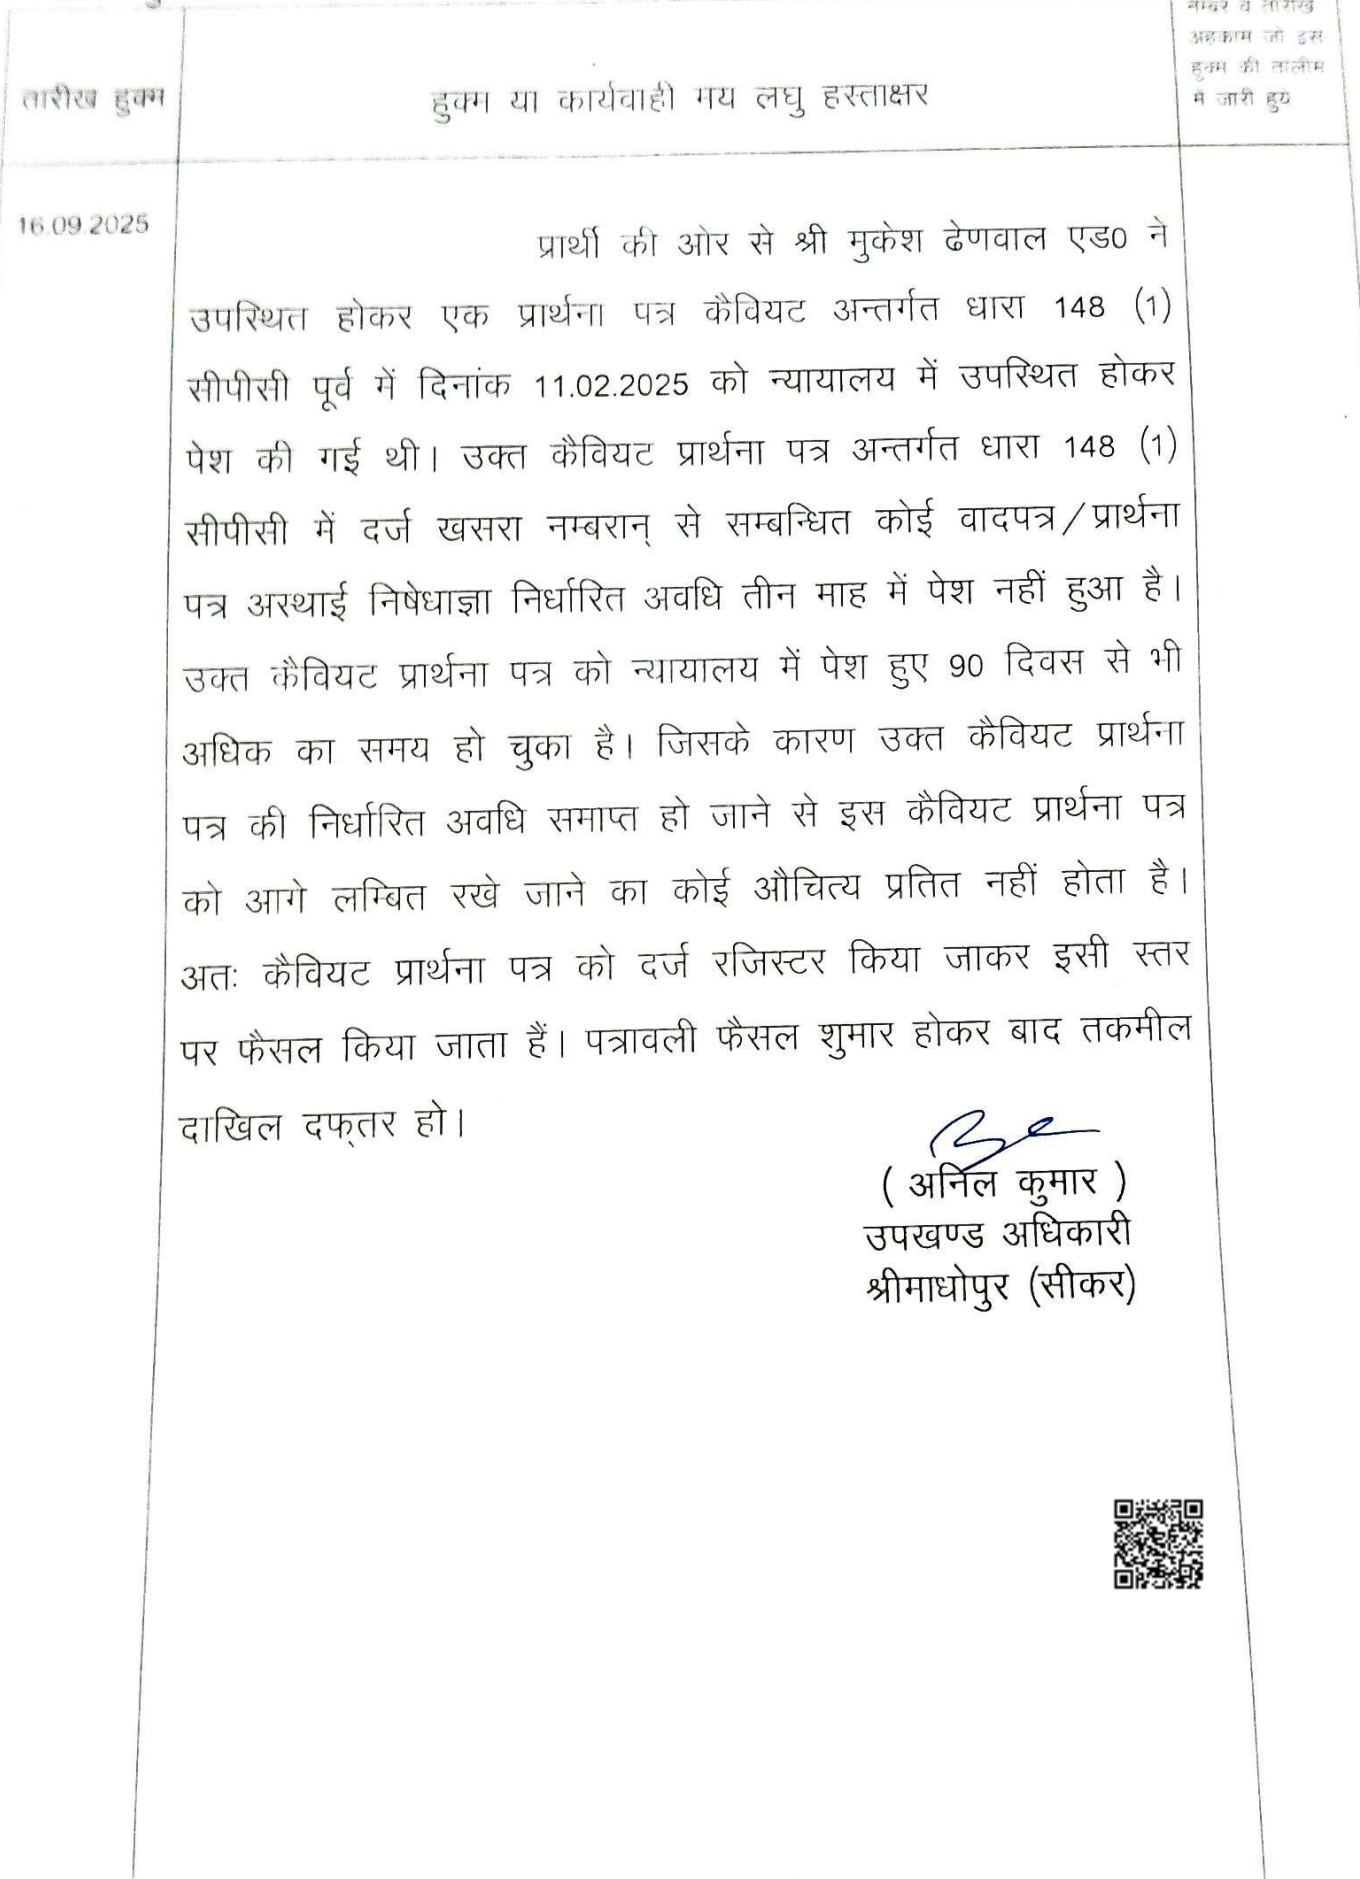 नम्बर व तारीख
अहकाम जो इस
हुक्म की तालीम
में जारी हुये
तारीख हुक्म
हुक्म या कार्यवाही मय लघु हस्ताक्षर
16.09.2025
प्रार्थी की ओर से श्री मुकेश ढेणवाल एड0 ने
उपस्थित होकर एक प्रार्थना पत्र कैवियट अन्तर्गत धारा 148 (1)
सीपीसी पूर्व में दिनांक 11.02.2025 को न्यायालय में उपस्थित होकर
पेश की गई थी। उक्त कैवियट प्रार्थना पत्र अन्तर्गत धारा 148 (1)
सीपीसी में दर्ज खसरा नम्बरान् से सम्बन्धित कोई वादपत्र/प्रार्थना
पत्र अस्थाई निषेधाज्ञा निर्धारित अवधि तीन माह में पेश नहीं हुआ है।
उक्त कैवियट प्रार्थना पत्र को न्यायालय में पेश हुए 90 दिवस से भी
अधिक का समय हो चुका है। जिसके कारण उक्त कैवियट प्रार्थना
पत्र की निर्धारित अवधि समाप्त हो जाने से इस कैवियट प्रार्थना पत्र
को आगे लम्बित रखे जाने का कोई औचित्य प्रतित नहीं होता है।
अतः कैवियट प्रार्थना पत्र को दर्ज रजिस्टर किया जाकर इसी स्तर
पर फैसल किया जाता हैं। पत्रावली फैसल शुमार होकर बाद तकमील
दाखिल दफ्तर हो।
( अनिल कुमार )
उपखण्ड अधिकारी
श्रीमाधोपुर (सीकर)